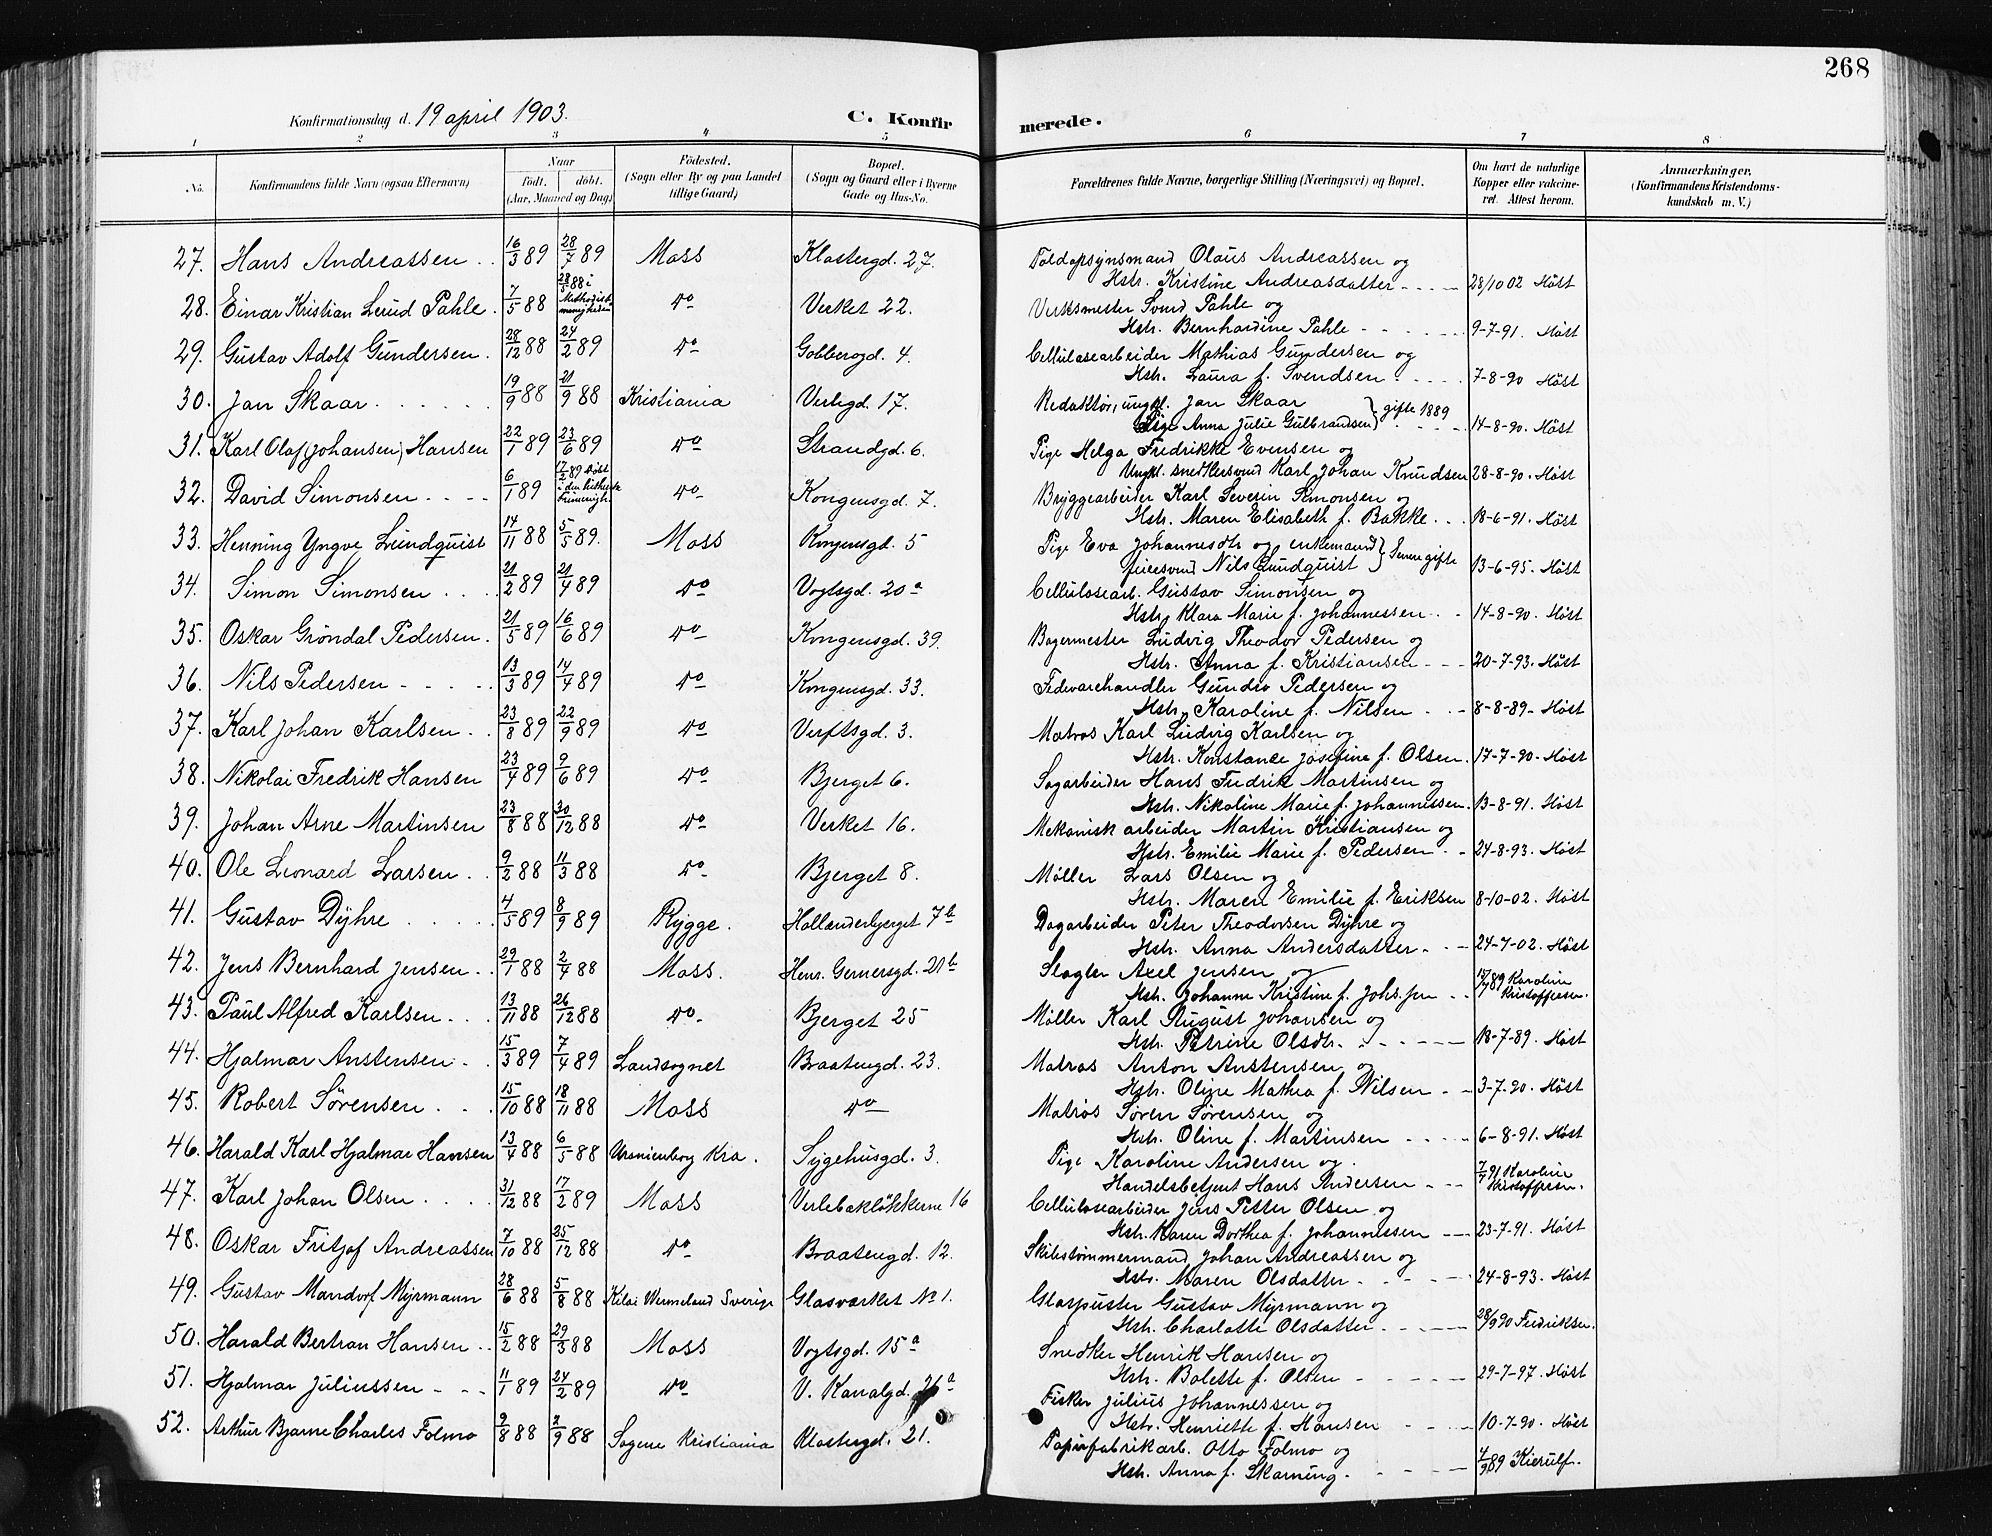 268
Konfirmationsdag d. 19 april 1903.
C. Konfirmerede.
1 2 3 4 5 6 7 8
No. Konfirmandens fulde Navn (ogsaa Efternavn) Naar født. døbt. (Aar, Maaned og Dag) Födested. (Sogn eller By og paa Landet tillige Gaard) Bopæl. (Sogn og Gaard eller i Byerne Gade og Hus-No. Forældrenes fulde Navne, borgerlige Stilling (Næringsvei) og Bopæl. Om havt de naturlige Kopper eller vakcineret. Attest herom. Anmærkninger. (Konfirmandens Kristendomskundskab m. V.)
27. Hans Andreassen 16/3 89 28/7 89 Moss Klostergd. 27. Toldopsynsmand Olaus Andreassen og
Hstr. Kristine Andreasdatter 28/10 02 Høst
28. Einar Kristian Lund Pahle 7/5 88 28/5 88 i Methodistmenigheden Do Verket 22. Verksmester Svend Pahle og
Hstr. Bernhardine Pahle 9-7-91. Høst
29. Gustav Adolf Gundersen 28/12 88 24/2 89 Do Gobbergd. 4. Cellulosearbeider Mathias Gundersen og
Hstr. Laura f. Svendsen 7-8-90 Høst
30. Jan Skaar 19/9 88 21/9 88 Kristiania Verlegd. 17. Redaktør, ungkl. Jan Skaar
Pige Anna Julie Gulbrandsen } gifte 1889 14-8-90. Høst
31. Karl Olaf (Johansen) Hansen 22/1 89 23/6 89 Do Strandgd. 6. Pige Helga Fredrikke Evensen og
Ungkl. snedkersvend Karl Johan Knudsen 28-8-90. Høst
32. David Simonsen 6/1 89 17/2 89 døbt i den luthersk Frimenigh. Do Kongensgd. 7. Bryggearbeider Karl Severin Simonsen og
Hstr. Maren Elisabeth f. Bakke 18-6-91. Høst
33. Henning Yngve Lundquist 14/11 88 5/5 89. Moss Kongensgd. 5 Pige Eva Johannesdtr og enkemand
feiersvend Nils Lundquist } Senere gifte 13-6-95. Høst
34. Simon Simonsen 21/2 89 21/4 89 Do Vogtsgd. 20a Cellulosearb. Gustav Simonsen og
Hstr. Klara Marie f. Johannessen 14-8-90. Høst
35. Oskar Gröndal Pedersen 21/5 89 16/6 89 Do Kongensgd. 39. Bagermester Ludvig Theodor Pedersen og
Hstr. Anna f. Kristiansen 20-7-93. Høst
36. Nils Pedersen 13/3 89 14/4 89 Do Kongensgd. 33. Fedevarehandler Gunder Pedersen og
Hstr. Karoline f. Nilsen 8-8-89 Høst
37. Karl Johan Karlsen 23/8 89 22/9 89 Do Verftsgd. 3. Matros Karl Ludvig Karlsen og
Hstr. Konstance Josefine f. Olsen. 17-7-90. Høst
38. Nikolai Fredrik Hansen 23/4 89 9/6 89 Do Bjerget 6. Sagarbeider Hans Fredrik Martinsen og
Hstr. Nikoline Marie f. Johannessen. 13-8-91. Høst
39. Johan Arne Martinsen 23/8 88 30/12 88 Do Verket 16. Mekanisk arbeider Martin Kristiansen og
Hstr. Emilie Marie f. Pedersen 24-8-93. Høst
40. Ole Leonard Larsen 9/2 88 11/3 88 Do Bjerget 8. Møller Lars Olsen og
Hstr. Maren Emilie f. Eriksen 8-10-02. Høst
41. Gustav Dyhre 4/5 89 8/9 89 Rygge. Hollænderbjerget 7b Dagarbeider Peter Theodorsen Dyhre og
Hstr. Anna Andersdatter 24-7-02. Høst
42. Jens Bernhard Jensen 29/1 88 2/4 88 Moss. Henr. Gernersgd. 21b Slagter Axel Jensen og
Hstr. Johanne Kristine f. Johs.sen 89 Karoline Kristoffersen.
43. Paul Alfred Karlsen 13/11 88 26/12 88 Do Bjerget 25 Møller Karl August Johansen og
Hstr. Petrine Olsdtr. 18-7-89. Høst
44. Hjalmar Anstensen 15/3 89 7/4 89 Landsognet Braatengd. 23. Matros Anton Anstensen og
Hstr. Oline Mathea f. Nilsen 3-7-90. Høst
45. Robert Sörensen 15/10 88 18/11 88 Moss Do Matros Sören Sörensen og
Hstr. Oline f. Martinsen 6-8-91. Høst
46. Harald Karl Hjalmar Hansen 13/4 88 6/5 88 Uranienborg Kra. Sygehusgd. 3. Pige Karoline Andersen og
Handelsbetjent Hans Andersen 7/7 91 Karoline Kristoffersen.
47. Karl Johan Olsen 31/12 88 17/2 89 Moss Verlebakløkkerne 16 Cellulosearbeider Jens Petter Olsen og
Hstr. Karen Dorthea f. Johannessen 23-7-91. Høst
48. Oskar Fritjof Andreassen 7/10 88 25/12 88 Do Braatengd. 12. Skibstømmermand Johan Andreassen og
Hstr. Maren Olsdatter 24-8-93. Høst
49. Gustav Mandorf Myrmann 28/6 88 5/8 88 Kilai Wermeland Sverige Glasværket No 1. Glaspuster Gustav Myrmann og
Hstr. Charlotte Olsdatter 28/9 90 Fredriksen.
50. Harald Bertran Hansen 15/2 88 29/3 88 Moss Vogtsgd. 15a Snedker Henrik Hansen og
Hstr. Bolette f. Olsen 29-7-97. Høst
51. Hjalmar Juliussen 11/1 89 24/2 89 Do V. Kanalgd. a Fisker Julius Johannessen og
Hstr. Henriette f. Hansen 10-7-90. Høst
52. Arthur Bjarne Charles Folmo 9/8 88 2/9 88 Sagene Kristiania Klostergd. 21. Papirfabrikarb. Otto Folmo og
Hstr. Anna f. Skarning. 4/9 89 Kierulf.